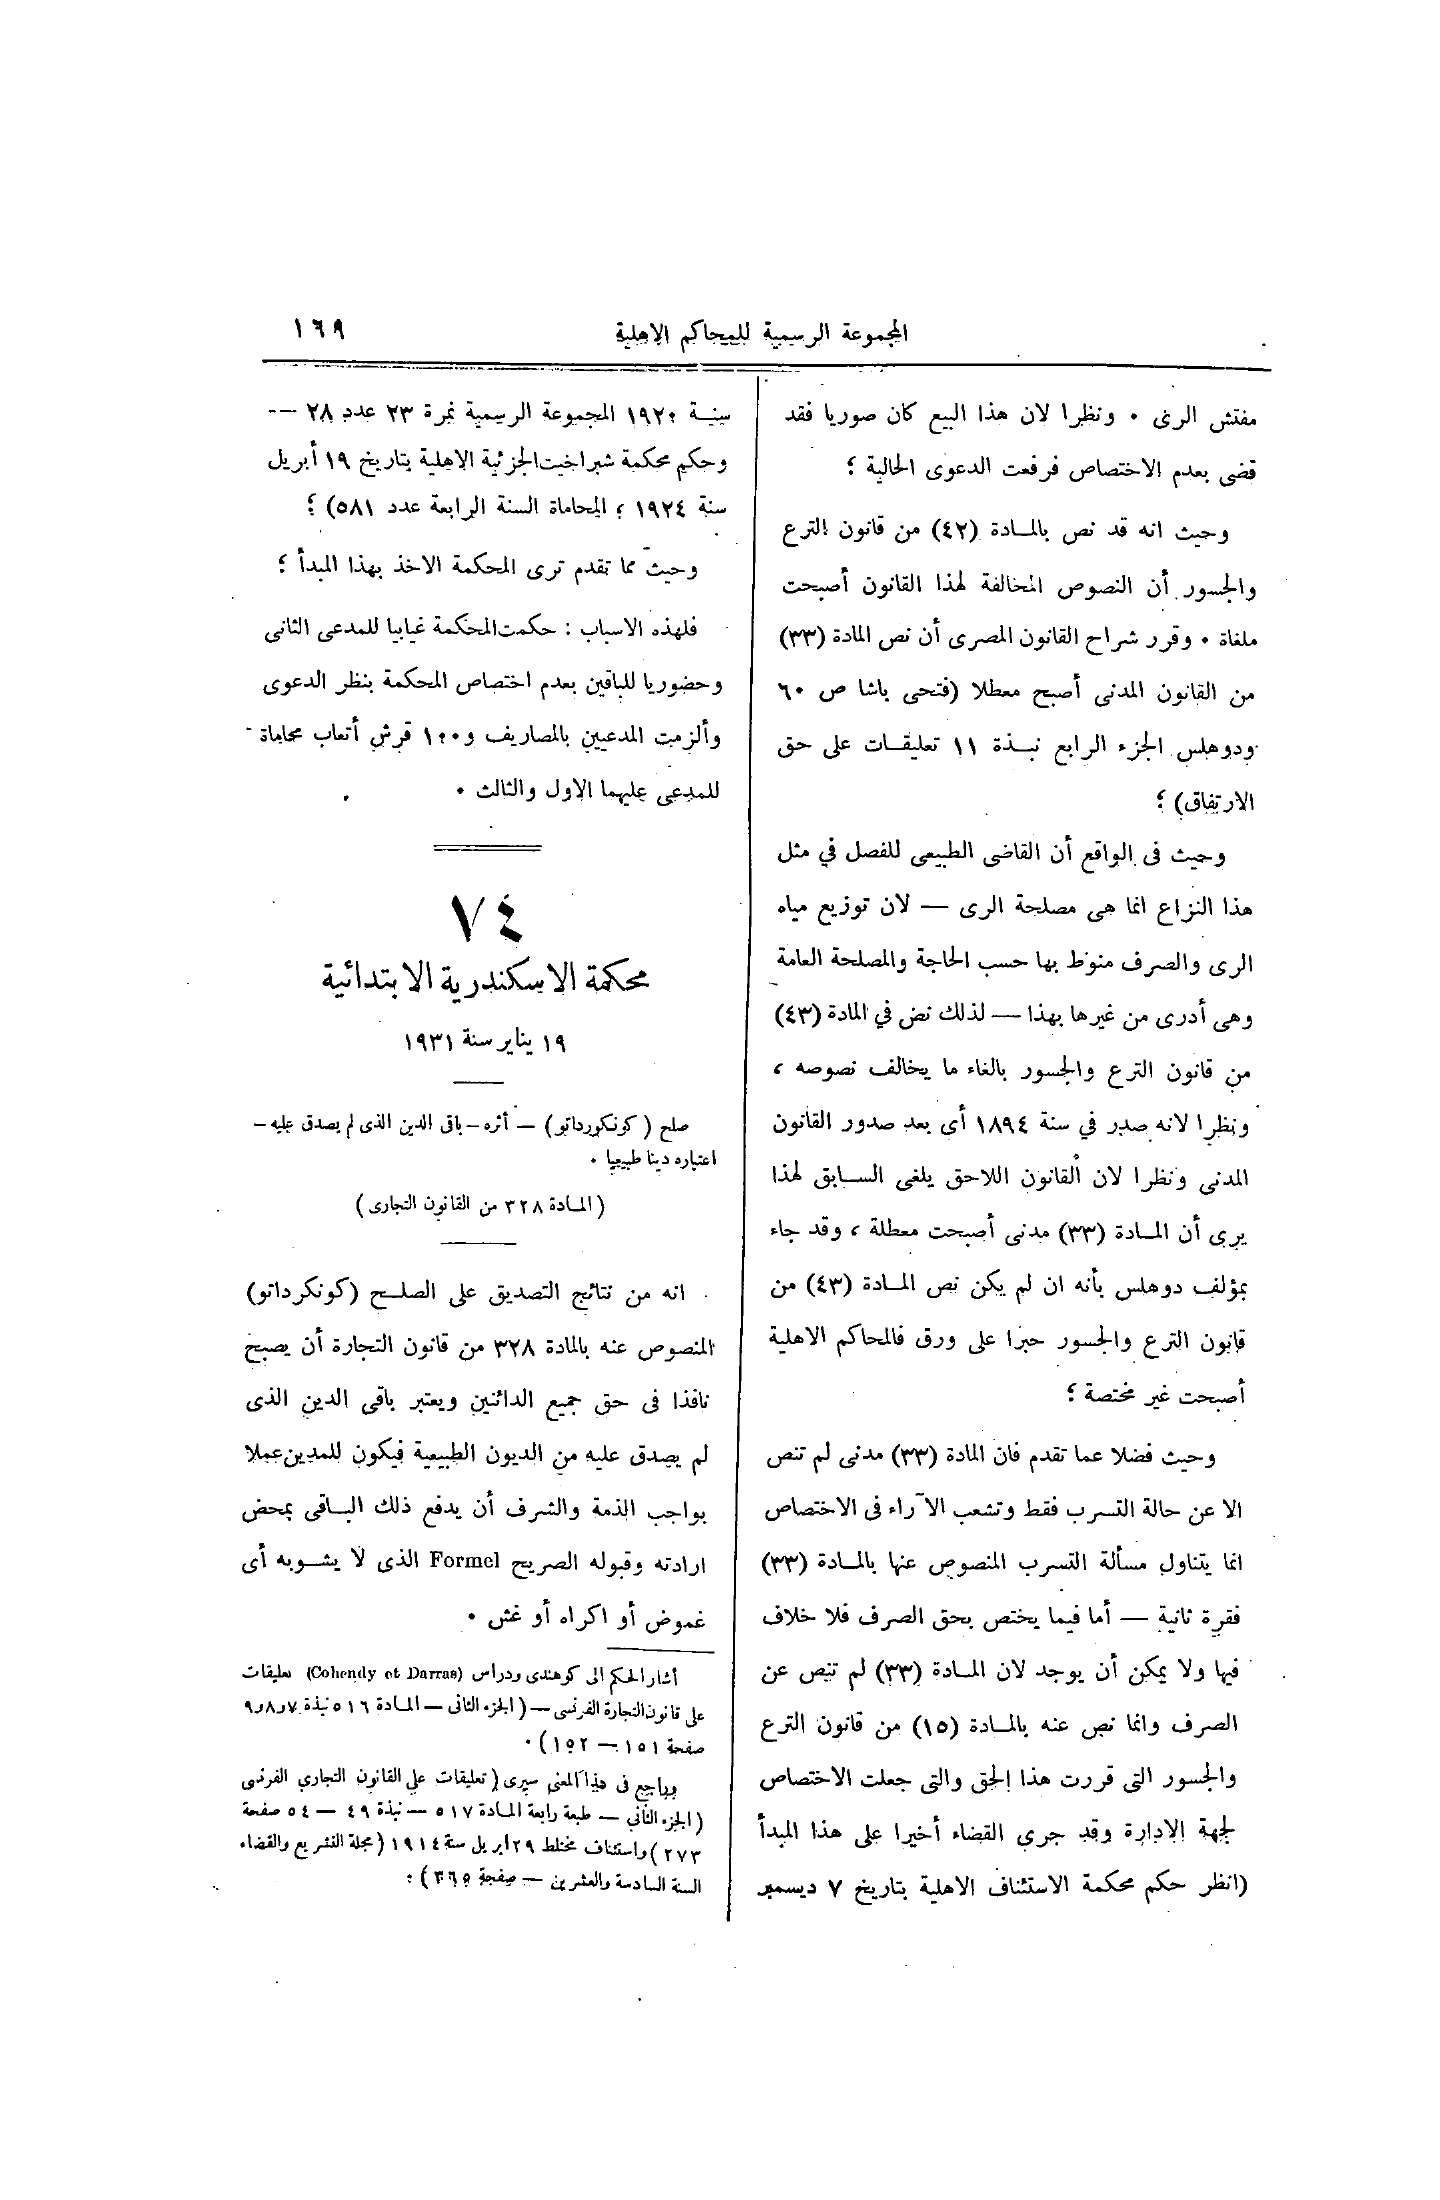 المجموعة الرسمية للمحاكم الاهلية
١٦٩
مفتش الرى ٠ ونظرا لان هذا البيع كان صوريا فقد
قضى بعدم الاختصاص فرفعت الدعوى الحالية ؛
وحيث انه قد نص بالمادة (٤٢) من قانون الترع
والجسور أن النصوص المخالفة لهذا القانون أصبحت
ملغاة ٠ وقرر شراح القانون المصرى أن نص المادة (٣٣)
من القانون المدنى أصبح معطلا (فتحى باشا ص ٦٠
ودوهلس الجزء الرابع نبذة ١١ تعليقات على حق
الارتفاق) ؛
وحيث فى الواقع أن القاضى الطبيعى للفصل في مثل
هذا النزاع انما هى مصلحة الرى — لان توزيع مياه
الرى والصرف منوط بها حسب الحاجة والمصلحة العامة
وهى أدرى من غيرها بهذا — لذلك نص في المادة (٤٣)
من قانون الترع والجسور بالغاء ما يخالف نصوصه ،
ونظرا لانه صدر في سنة ١٨٩٤ أى بعد صدور القانون
المدنى ونظرا لان القانون اللاحق يلغى السابق لهذا
يرى أن المادة (٣٣) مدنى أصبحت معطلة ، وقد جاء
بمؤلف دوهلس بأنه ان لم يكن نص المادة (٤٣) من
قانون الترع والجسور حبرا على ورق فالمحاكم الاهلية
أصبحت غير مختصة ؛
وحيث فضلا عما تقدم فان المادة (٣٣) مدنى لم تنص
الا عن حالة التسرب فقط وتشعب الآراء فى الاختصاص
انما يتناول مسألة التسرب المنصوص عنها بالمادة (٣٣)
فقرة ثانية — أما فيما يختص بحق الصرف فلا خلاف
فيها ولا يمكن أن يوجد لان المادة (٣٣) لم تنص عن
الصرف وانما نص عنه بالمادة (١٥) من قانون الترع
والجسور التى قررت هذا الحق والتى جعلت الاختصاص
لجهة الادارة وقد جرى القضاء أخيرا على هذا المبدأ
(انظر حكم محكمة الاستئناف الاهلية بتاريخ ٧ ديسمبر
سنة ١٩٢٠ المجموعة الرسمية نمرة ٢٣ عدد ٢٨ —
وحكم محكمة شبراخيت الجزئية الاهلية بتاريخ ١٩ أبريل
سنة ١٩٢٤ ، المحاماة السنة الرابعة عدد ٥٨١) ؛
وحيث مما تقدم ترى المحكمة الاخذ بهذا المبدأ ؛
فلهذه الاسباب : حكمت المحكمة غيابيا للمدعى الثانى
وحضوريا للباقين بعدم اختصاص المحكمة بنظر الدعوى
وألزمت المدعيين بالمصاريف و١٠٠ قرش أتعاب محاماة
للمدعى عليهما الاول والثالث ٠
٧٤
محكمة الاسكندرية الابتدائية
١٩ يناير سنة ١٩٣١
صلح (كونكورداتو) — أثره — باقى الدين الذى لم يصدق عليه —
اعتباره دينا طبيعيا ٠
(المادة ٣٢٨ من القانون التجارى)
انه من نتائج التصديق على الصلح (كونكرداتو)
المنصوص عنه بالمادة ٣٢٨ من قانون التجارة أن يصبح
نافذا فى حق جميع الدائنين ويعتبر باقى الدين الذى
لم يصدق عليه من الديون الطبيعية فيكون للمدين عملا
بواجب الذمة والشرف أن يدفع ذلك الباقى بمحض
ارادته وقبوله الصريح Formel الذى لا يشوبه أى
غموض أو اكراه أو غش ٠
أشار الحكم الى كوهندى ودراس (Cohendy et Darras) تعليقات
على قانون التجارة الفرنسى — (الجزء الثانى — المادة ٥١٦ نبذة ٧و٨و٩
صفحة ١٥١ — ١٥٢) ٠
ويراجع فى هذا المعنى سيرى (تعليقات على القانون التجاري الفرنسى
(الجزء الثانى — طبعة رابعة المادة ٥١٧ — نبذة ٤٩ — ٥٤ صفحة
٢٧٣) واستئناف مختلط ٢٩ ابريل سنة ١٩١٤ (مجلة التشريع والقضاء
السنة السادسة والعشرين — صفحة ٣٦٥) ٠